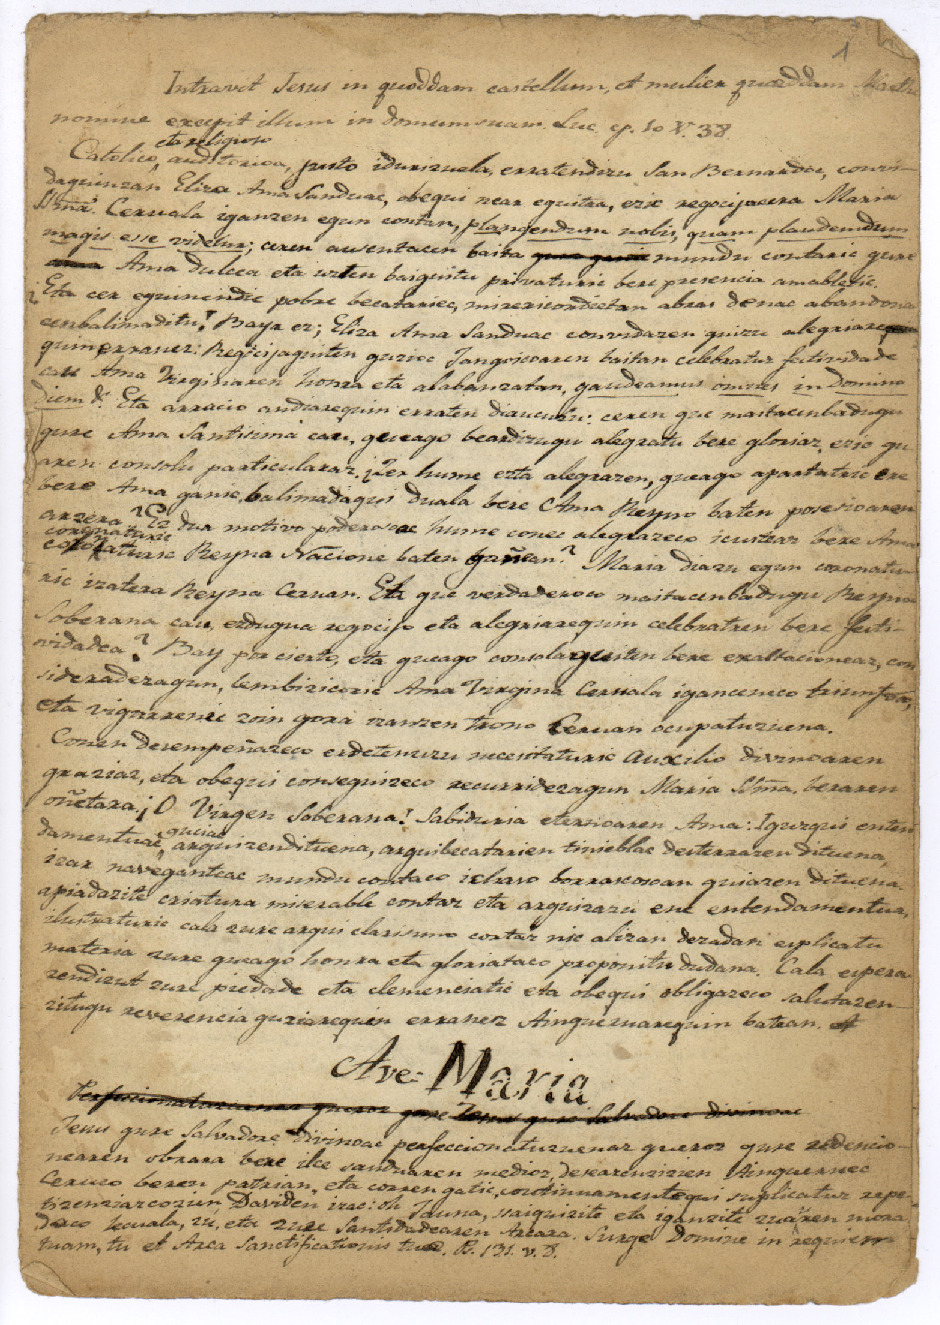 1
Intravit Jesus in quoddam castellum, et mulier quaeddam Martha
nomine excepit illum in domum suam. Luc. cp. 10 V. 38
eta religioso
Catolico, auditorioa, justo idurizuela, erratendizu San Bernardoc, convi-
daquinzan Eliza Ama Sanduac, obequi near equitea, eric regocijacera Maria
SSma. Ceruala iganzen egun contan, plangendum nobis, quam plaudendum
magis esse videtur; ceren ausentacen baita mundu contaric gure
Ama dulcea eta uzten baiguitu privaturic bere presencia amabletic.
Eta cer eguinendic pobre becatariec, misericordietan abras denac abandona
cenbalimaditu? Bayа ez; Eliza Ama Sanduac convidazen guizu alegriare
quin erranez: Regocijaquiten guzioc Jangoicoaren baitan celebratuz festividade
cau Ama Virginaren honra eta alabanzatan, gaudeamus omnes in Domino
Diem &c. Eta arracio andiarequin erraten diaucuzu: ceren gue maitacenbadugu
gure Ama Santisima cau, gueago beardizugu alegratu bere gloriaz, eric gu
aren consolu particularaz. ¡Zer hume ezta alegrazen, gueago apartatric ere
bere Ama ganic, balimadaqui duala bere Ama Reyno baten posesioaren
arzera? Ez dua motivo poderosoac hume conec alegrazeco icusteaz bere Ama
coronaturic
Reyna Nacione baten gañean? Maria diazu egun coronatu-
ric izatera Reyna Ceruan. Eta gue verdaderoco maitacenbadugu Reyna
Soberana cau, ezdugua regocijo eta alegriarequin celebratzen bere festi-
vidadea? Bay por cierto, eta gueago consolaguiten bere exaltacioneaz, con
sideradezagun, lembizicoric Ama Virgina Ceruala iganceneco triunfoa,
eta vigarrenic zoin gora izanzen trono Ceruan ocupatuzuena.
Conen desempeñazeco erdetenuzu necesitaturic Auxilio divinoaren
graziaz, eta obequi conseguizeco recurridezagun Maria SSma, beraren
oñetara, ¡O Virgen Soberana! Sabiduria eternoaren Ama: Iguzqui enten
guciac
damentuac, arguizendituena, arguibecatarien tinieblac desterrazen dituena,
izar naveganteac mundu contaco ichaso borrascosoan guiazen dituena.
apiadazite criatura miserable contaz eta arguizazu ene entendamentua,
ilustraturic cala zure argui clarisimo contaz nic alizan dezadan esplicatu
materia zure gueago honra eta gloriataco proponitu dudana. Cala espera
zendizut zure piedade eta clemenciatic eta obequi obligazeco salutazen-
zitugu reverencia guziarequin erranez Aingueruarequin batean.
Ave Maria
Perfeccionatuzuenaz gueroz gure Jesus gure Salvadore divinoac
Jesus gure Salvadore Divinoac perfeccionatuzuenaz gueroz gure redencio-
nearen obrara bere ilce sanduaren medioz, desearenzizen Ainguruec
Ceruco beren patrian, eta corren gatic, continuamentequi suplicatuz repe-
tizenziarcozun, Daviden izacioh Jauna, jaiquizite eta iganzite zuaren mora
daco lecuala, zu, eta zure Santidadearen Arcara. Surge Domine in requiem
tuam, tu et Arca Sanctificationis tuae. Ps. 131. v. 8.